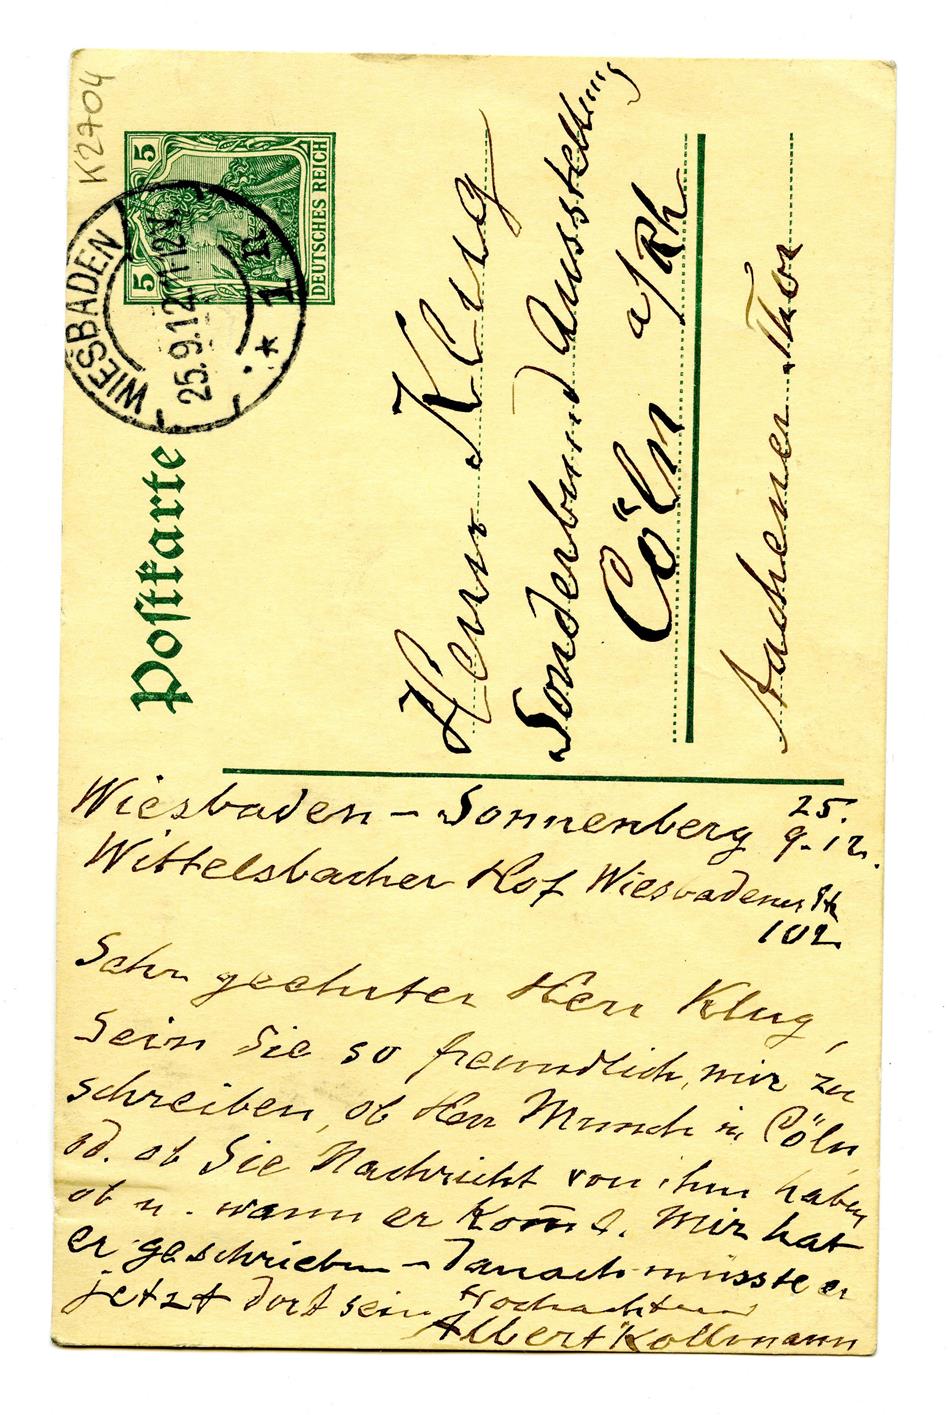 K2704
5 5
DEUTSCHES REICH
WIESBADEN
25.9.12.11-12V.
* 1 n
Postkarte
Herrn Klug
Sonderbund Ausstellung
Cöln a/Rh
Aachener Thor
Wiesbaden - Sonnenberg 25.
9.12.
Wittelsbacher Hof Wiesbadener Str
102
Sehr geehrter Herr Klug,
Sein Sie so freundlich, mir zu
schreiben, ob Herr Munch in Cöln
od. ob Sie Nachricht von ihm haben
ob u. wann er kom̄t. Mir hat
er geschrieben - danach müsste er
jetzt dort sein Hochachtend
Albert Kollmann